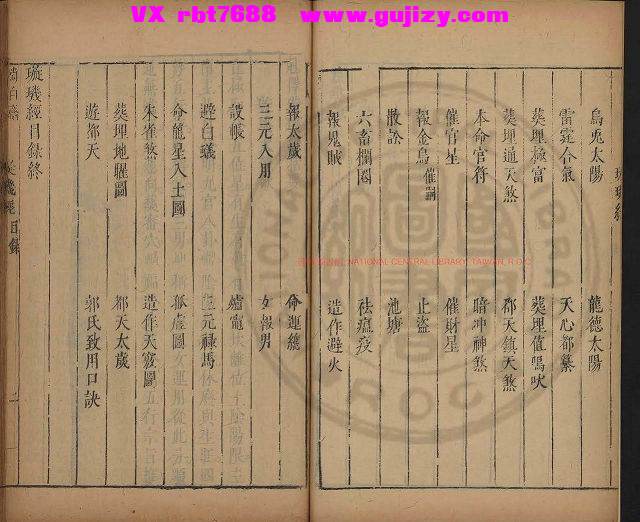 VX rbt7688 www.gujizy.com
璇璣經
烏兎太陽 龍德太陽
雷霆合氣 天心都纂
𦵏埋極富 𦵏埋值鳴吠
𦵏埋通天煞 都天鎮天煞
本命官符 暗冲神煞
催官星 催財星
報金烏催嗣 止盜
散訟 池塘
六畜欄圈 祛瘟疫
報鬼賊 造作避火
NATIONAL CENTRAL LIBRARY, TAIWAN, R.O.C
報太歲 命運纏
三元入用 女報男
設帳 爐竈
避白蟻 三元祿馬
命龍星入土圖 孤虛圖
朱雀煞 造作天竅圖
𦵏埋地曜圖 都天太歲
遊都天 郭氏致用口訣
璇璣經目錄終
目錄 二